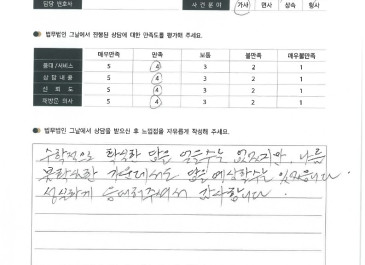 담당 변호사 사건 분야 가사 민사 상속 형사
법무법인 그날에서 진행된 상담에 대한 만족도를 평가해 주세요.
매우만족 만족 보통 불만족 매우불만족
응대/서비스 5 4 3 2 1
상담내용 5 4 3 2 1
신뢰도 5 4 3 2 1
재방문 의사 5 4 3 2 1
법무법인 그날에서 상담을 받으신 후 느낌점을 자유롭게 작성해 주세요.
수학적으로 확실한 답을 얻을수는 없겠지만, 나름
불확실한 가운데서도 답을 예상할수는 있었습니다.
성실하게 응대해주셔서 감사합니다.